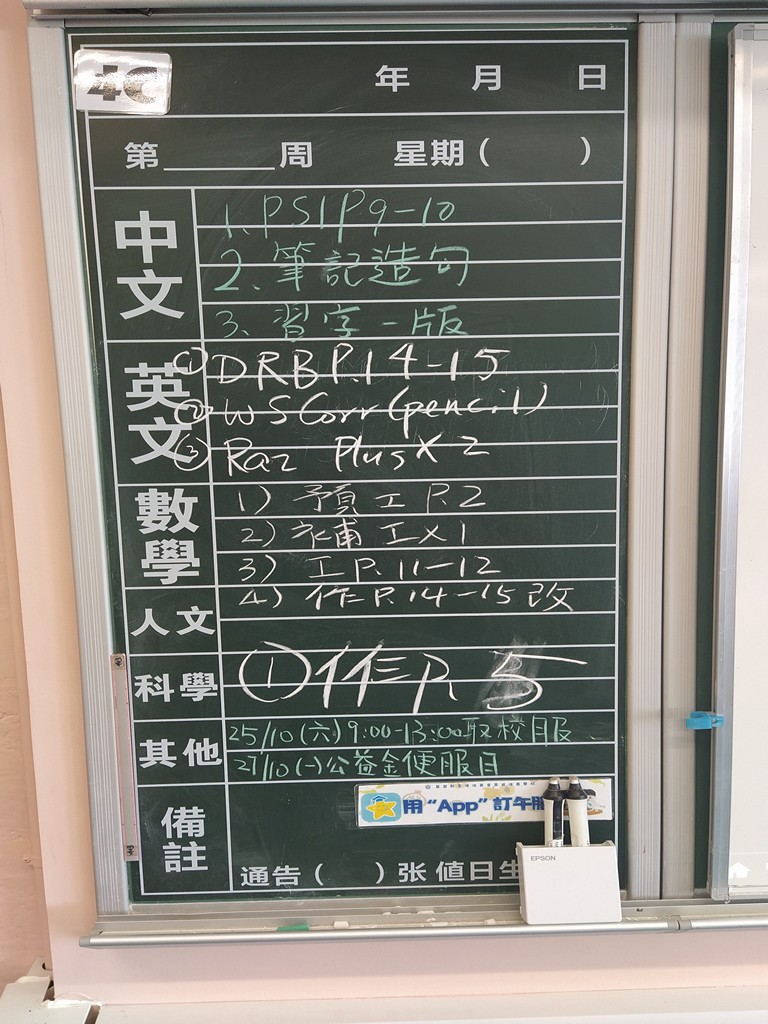 4C
年 月 日
第______周 星期( )
中文
1. PS1P9-10
2. 筆記造句
3. 習字一版
英文
① DRB P.14-15
② WS Corr (pencil)
③ Raz Plus X 2
數學
1) 預工 P.2
2) 補工 X 1
3) 工 P. 11-12
4) 作 P. 14-15 改
人文
科學
① 作 P. 5
其他
25/10 (六) 9:00-13:00 取校服
27/10 (一) 公益金便服日
備註
用 "App" 訂午
EPSON
通告( )张 値日生